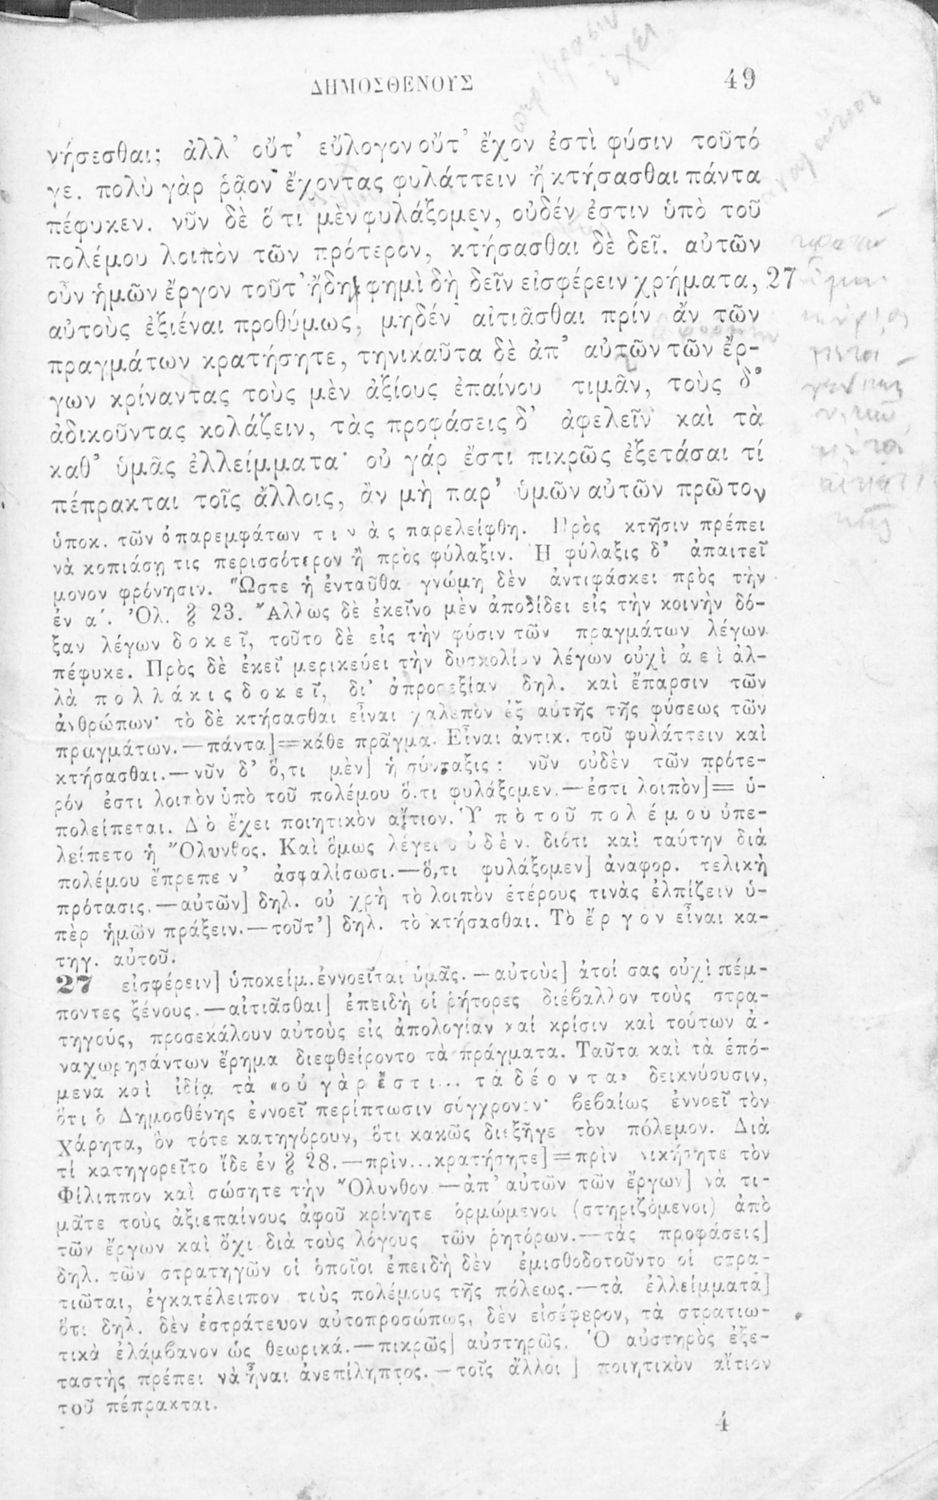 ΔΗΜΟΣΘΕΝΟΥΣ 49
νήσεσθαι; ἀλλ' οὔτ' εὔλογον οὔτ' ἔχον ἐστὶ φύσιν τοῦτό
γε. πολὺ γὰρ ῥᾷον ἔχοντας φυλάττειν ἢ κτήσασθαι πάντα
πέφυκεν. νῦν δὲ ὅ τι μὲν φυλάξομεν, οὐδέν ἐστιν ὑπὸ τοῦ
πολέμου λοιπὸν τῶν πρότερον, κτήσασθαι δὲ δεῖ. αὐτῶν
οὖν ἡμῶν ἔργον τοῦτ' ἤδη φημὶ δὴ δεῖν εἰσφέρειν χρήματα, 27
αὐτοὺς ἐξιέναι προθύμως, μηδέν αἰτιᾶσθαι πρίν ἂν τῶν
πραγμάτων κρατήσητε, τηνικαῦτα δὲ ἀπ' αὐτῶν τῶν ἔρ-
γων κρίναντας τοὺς μὲν ἀξίους ἐπαίνου τιμᾶν, τοὺς δ'
ἀδικοῦντας κολάζειν, τὰς προφάσεις δ' ἀφελεῖν καὶ τὰ
καθ' ὑμᾶς ἐλλείμματα· οὐ γάρ ἔστι πικρῶς ἐξετάσαι τί
πέπρακται τοῖς ἄλλοις, ἂν μὴ παρ' ὑμῶν αὐτῶν πρῶτον
ὑποκ. τῶν ἀπαρεμφάτων τινὰς παρελείφθη. Πρὸς κτῆσιν πρέπει
νὰ κοπιάσῃ τις περισσότερον ἢ πρὸς φύλαξιν. Ἡ φύλαξις δ' ἀπαιτεῖ
μονον φρόνησιν. Ὥστε ἡ ἐνταῦθα γνώμη δὲν ἀντιφάσκει πρὸς τὴν
ἐν α΄. Ὀλ. § 23. Ἄλλως δὲ ἐκεῖνο μὲν ἀποδίδει εἰς τὴν κοινὴν δό-
ξαν λέγων δοκεῖ, τοῦτο δὲ εἰς τὴν φύσιν τῶν πραγμάτων λέγων
πέφυκε. Πρὸς δὲ ἐκεῖ μερικεύει τὴν δυσκολίαν λέγων οὐχὶ ἀεὶ ἀλ-
λὰ πολλάκις δοκεῖ, δι' ἀπροσεξίαν δηλ. καὶ ἔπαρσιν τῶν
ἀνθρώπων· τὸ δὲ κτήσασθαι εἶναι χαλεπὸν ἐξ αὐτῆς τῆς φύσεως τῶν
πραγμάτων.—πάντα]=κάθε πρᾶγμα. Εἶναι ἀντικ. τοῦ φυλάττειν καὶ
κτήσασθαι.—νῦν δ' ὅ,τι μὲν] ἡ σύνταξις: νῦν οὐδὲν τῶν πρότε-
ρόν ἐστι λοιπὸν ὑπὸ τοῦ πολέμου ὅ,τι φυλάξομεν.—ἐστι λοιπὸν]= ὑ-
πολείπεται. Διὸ ἔχει ποιητικὸν αἴτιον. Ὑπὸ τοῦ πολέμου ὑπε-
λείπετο ἡ Ὄλυνθος. Καὶ ὅμως λέγει οὐδὲν, διότι καὶ ταύτην διὰ
πολέμου ἔπρεπε ν' ἀσφαλίσωσι.—ὅ,τι φυλάξομεν] ἀναφορ. τελικὴ
πρότασις.—αὐτῶν] δηλ. οὐ χρὴ τὸ λοιπὸν ἑτέρους τινὰς ἐλπίζειν ὑ-
πὲρ ἡμῶν πράξειν.—τοῦτ'] δηλ. τὸ κτήσασθαι. Τὸ ἔργον εἶναι κα-
τηγ. αὐτοῦ.
27 εἰσφέρειν] ὑποκείμ. ἐννοεῖται ὑμᾶς.—αὐτοὺς] ἀτοί σας οὐχὶ πέμ-
ποντες ξένους.—αἰτιᾶσθαι] ἐπειδὴ οἱ ῥήτορες διέβαλλον τοὺς στρα-
τηγούς, προσεκάλουν αὐτοὺς εἰς ἀπολογίαν καὶ κρίσιν καὶ τούτων ἀ-
ναχωρησάντων ἔρημα διεφθείροντο τὰ πράγματα. Ταῦτα καὶ τὰ ἑπό-
μενα καὶ ἰδίᾳ τὰ «οὐ γὰρ ἔστι... τὰ δέοντα» δεικνύουσιν,
ὅτι ὁ Δημοσθένης ἐννοεῖ περίπτωσιν σύγχρονον· βεβαίως ἐννοεῖ τὸν
Χάρητα, ὃν τότε κατηγόρουν, ὅτι κακῶς διεξῆγε τὸν πόλεμον. Διὰ
τί κατηγορεῖτο ἴδε ἐν § 28.—πρὶν...κρατήσητε]=πρὶν νικήσητε τὸν
Φίλιππον καὶ σώσητε τὴν Ὄλυνθον.—ἀπ' αὐτῶν τῶν ἔργων] νὰ τι-
μᾶτε τοὺς ἀξιεπαίνους ἀφοῦ κρίνητε ὁρμώμενοι (στηριζόμενοι) ἀπὸ
τῶν ἔργων καὶ ὄχι διὰ τοὺς λόγους τῶν ῥητόρων.—τὰς προφάσεις]
δηλ. τῶν στρατηγῶν οἱ ὁποῖοι ἐπειδὴ δὲν ἐμισθοδοτοῦντο οἱ στρα-
τιῶται, ἐγκατέλειπον τοὺς πολέμους τῆς πόλεως.—τὰ ἐλλείμματα]
ὅτι δηλ. δὲν ἐστράτευον αὐτοπροσώπως, δὲν εἰσέφερον, τὰ στρατιω-
τικὰ ἐλάμβανον ὡς θεωρικά.—πικρῶς] αὐστηρῶς. Ὁ αὐστηρὸς ἐξε-
ταστὴς πρέπει νὰ ἦναι ἀνεπίληπτος.—τοῖς ἄλλοι] ποιητικὸν αἴτιον
τοῦ πέπρακται.
4